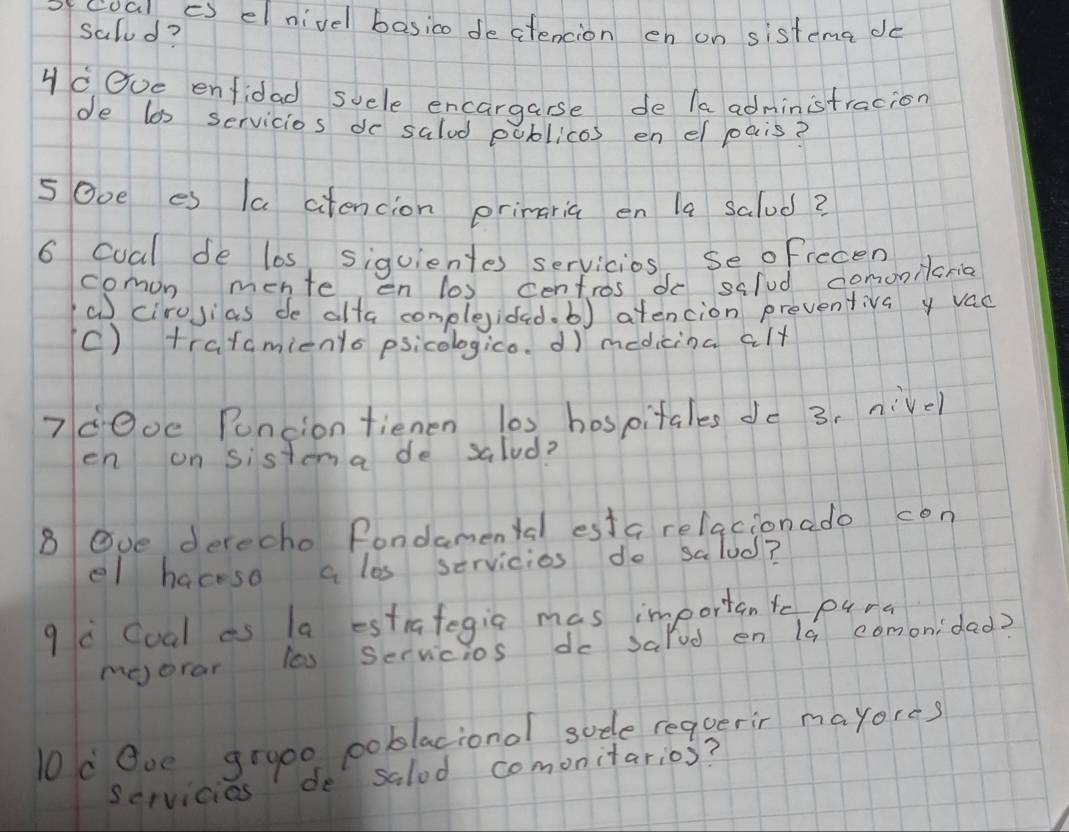 3¿ cual es el nivel basico de atencion en un sistema de
salud?
4 ¿ Que entidad suele encargarse de la administracion
de los servicios de salud publicos en el pais?
5 Que es la atencion primaria en la salud?
6 cual de los siguientes servicios se ofrecen
comun mente en los centros de salud comunitaria
a) cirujias de alta complejidad. b) atencion preventiva y vac
c) tratamiento psicologico. d) medicina alt
7 ¿Que funcion tienen los hospitales de 3r nivel
en un sistema de salud?
8 que derecho fundamental esta relacionado con
el hacesa a los servicios de salud?
9 ¿ Cual es la estrategia mas importante para
mejorar los servicios de salud en la comonidad?
10 ¿ Que grupo poblacional suele requerir mayores
servicios de salud comunitarios?